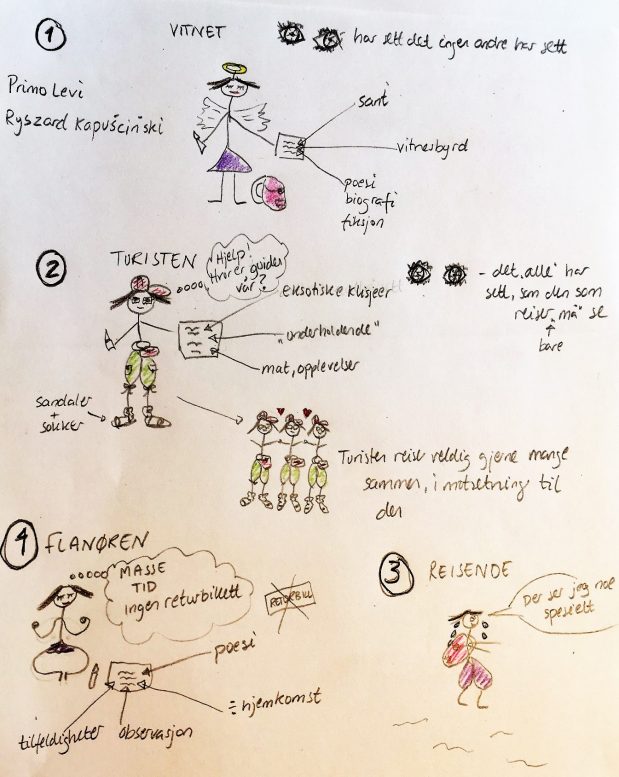 1 VITNET
har sett det ingen andre har sett
Primo Levi
Ryszard Kapuściński
sant
vitnesbyrd
poesi
biografi
fiksjon
2 TURISTEN
Hjelp!
Hvor er guiden
vår?
eksotiske klisjeer
"underholdende"
mat, opplevelser
- det "alle" har
sett, som den som
reiser "må" se
bare
sandaler
+
sokker
Turisten reiser veldig gjerne mange
sammen, i motsetning til
den
4 FLANØREN
MASSE
TID
ingen returbillett
poesi
÷ hjemkomst
tilfeldigheter
observasjon
3 REISENDE
Der ser jeg noe
spesielt